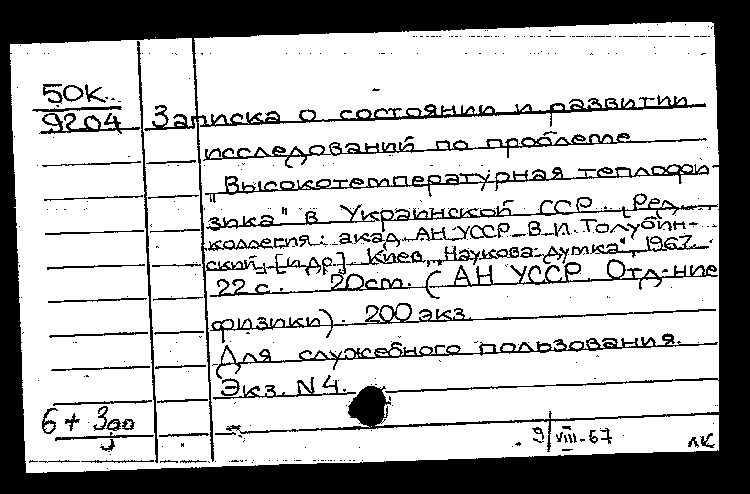 50К.
9204 Записка о состоянии и развитии
исследований по проблеме
"Высокотемпературная теплофи-
зика" в Украинской ССР. [Ред.
коллегия: акад. АН УССР В.И. Толубин-
ский, [и др.]. Киев, „Наукова думка", 1967.
22 с. 20см. (АН УССР. Отд-ние
физики). 200 экз.
Для служебного пользования.
Экз. N 4.
6 +
9/VIII-67 лк